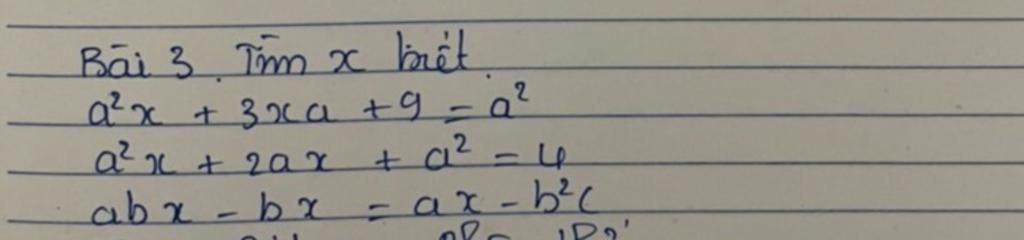 Bài 3. Tìm x biết.
a²x + 3xa + 9 = a²
a²x + 2ax + a² = 4
abx - bx = ax - b²c